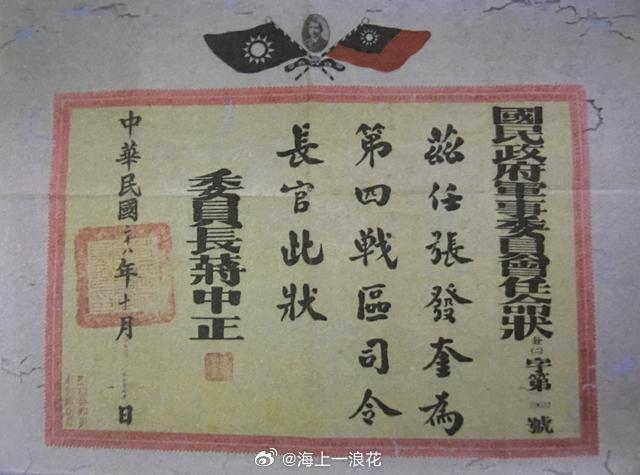 國民政府軍事委員會任命狀
字第 號
茲任張發奎為
第四戰區司令
長官此狀
委員長蔣中正
中華民國二十八年十月 日
@海上一浪花